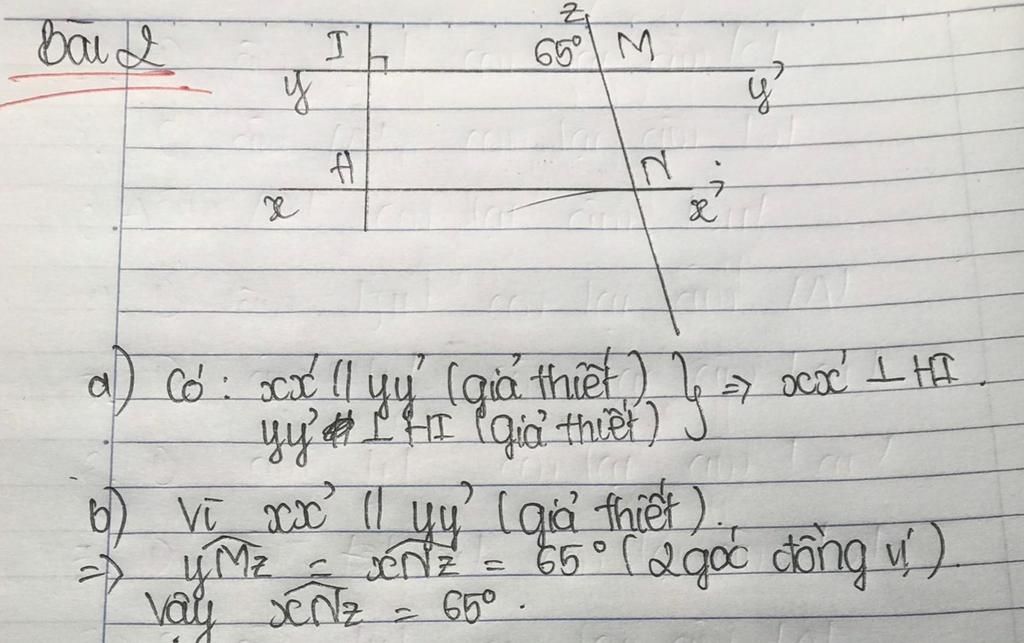 Bài 2
z
I 65° M
y y'
H N
x x'
a) Có: xx' // yy' (giả thiết) } => xx' ⊥ HI.
yy' ⊥ HI (giả thiết)
b) Vì xx' // yy' (giả thiết).
=> yMz = xNz = 65° (2 góc đồng vị).
Vậy xNz = 65°.